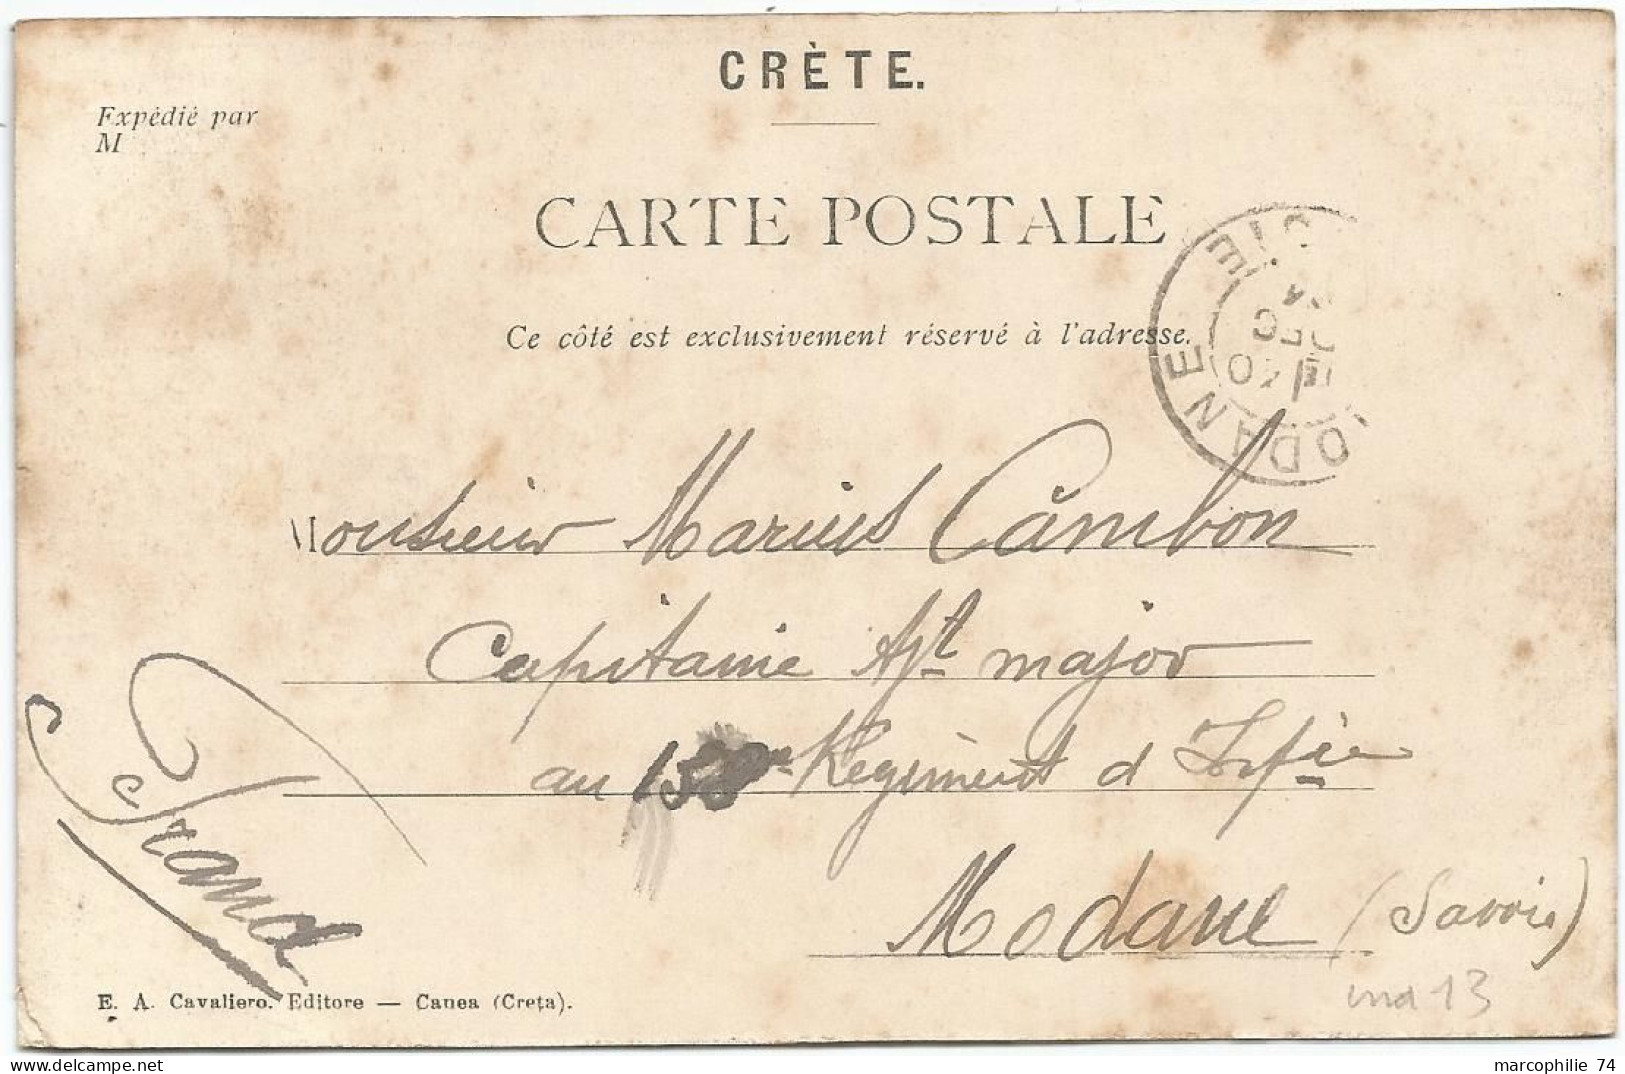 CRÈTE.
Expédié par
M
CARTE POSTALE
Ce côté est exclusivement réservé à l'adresse.
ODANE
Monsieur Marius Cambon
Capitaine Ajt major
au 158 Régiment d Infie
Modane (Savoie)
E. A. Cavaliero. Editore — Canea (Creta).
13
marcophilie 74